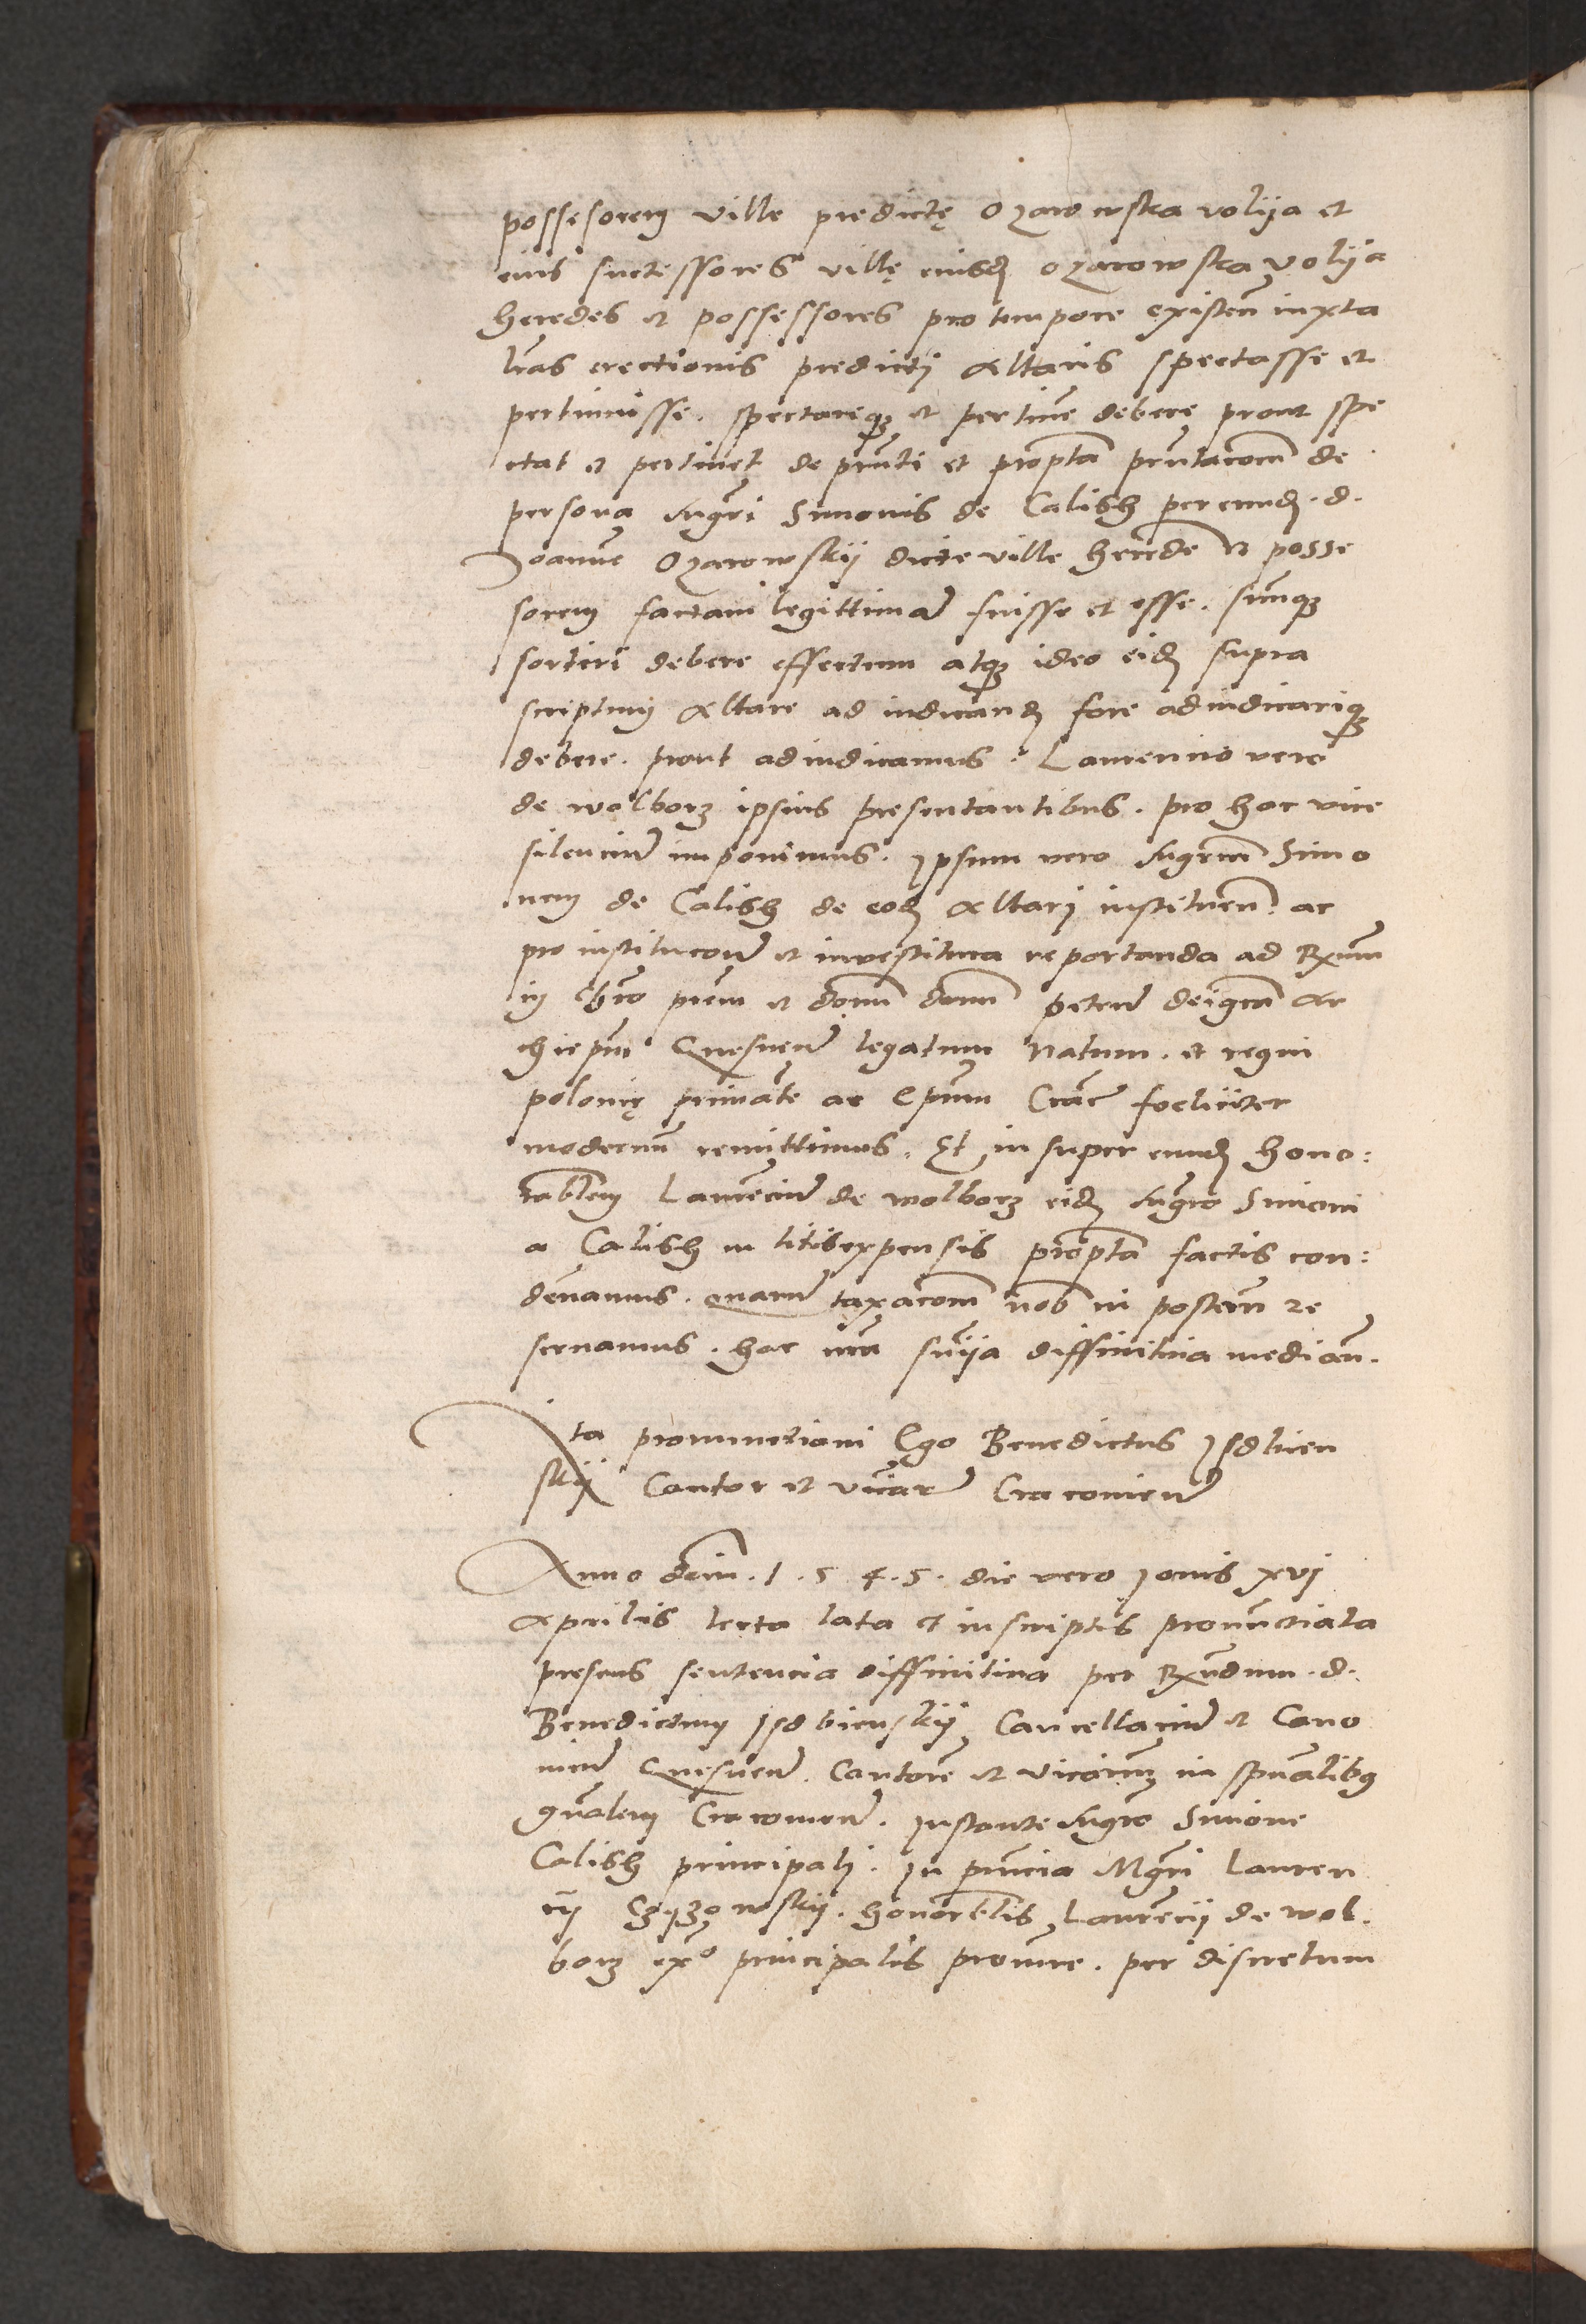 possesorem ville predictę Ozarowska volija et
eius successores villę eiusd Ozarowska Volija
heredes et possessores pro tempore existeñ iuxta
lr̃as erectionis predicti Altaris spectasse et
pertinuisse. spectareq₃ et pertinẽ debere prout spe
ctat et pertinet de pn̄ti et propt̃a pn̄tac̃om̃ de
persona Mgr̃i Simonis de Calish per eund. d.
Joanne Ozarowskij dicte ville herede et posse
sorem factam legittimã fuisse et esse. suumq₃
sortiri debere effectum atq₃ ideo eid supra
scriptum Altare adiudicand fore adiudicariq₃
debere. prout adiudicamus. Laurencio vero
de wolborz ipsius presentantibus. pro hac vice
silencium imponimus. Ipsum vero Mgr̃um Simo
nem de Calish de eod Altari instituen̄. ac
pro institucone et investitura reportanda ad Rx̃um
in Chr̃o prẽm et dom̃ dom̃ petrũ dei gr̃a Ar
chiep̃m Gnesneñ legatum Natum. et regni
polonię primatẽ ac Ep̃um Crac̃ foeliciter
modernũ remittimus. Et in super eund hono:
rablem Laurẽcium de wolborz eid Mgr̃o Simoni
a Calish in litis expensis propt̃a factis con:
dẽnamus. quarũ taxac̃om̃ nob̃ in posterũ re
servamus. hac nr̃a sñija diffinitiva mediañ.
Ita pronunctiavi Ego Benedictus Isdbien
skij Cantor et vicar̃ Cracovieñ
Anno dom̃. 1. 5 4. 5. die vero Jovis xvj
Aprilis lecta lata et in scriptis pronũctiata
presens sentencia diffinitiva per Rx̃ndum. d.
Benedictum Isdbienskij Cancellariũ et Cano
nicũ Gnesneñ. Cantorẽ et vicariũ in spũalibq
gñalem Cracovieñ. Instante Mgr̃o Simone
Calish principalj. In pñcia Mgr̃i Lauren
cij honorabilis Laurẽcij de wol.
borz ex⁰ principalis procure. per discretum